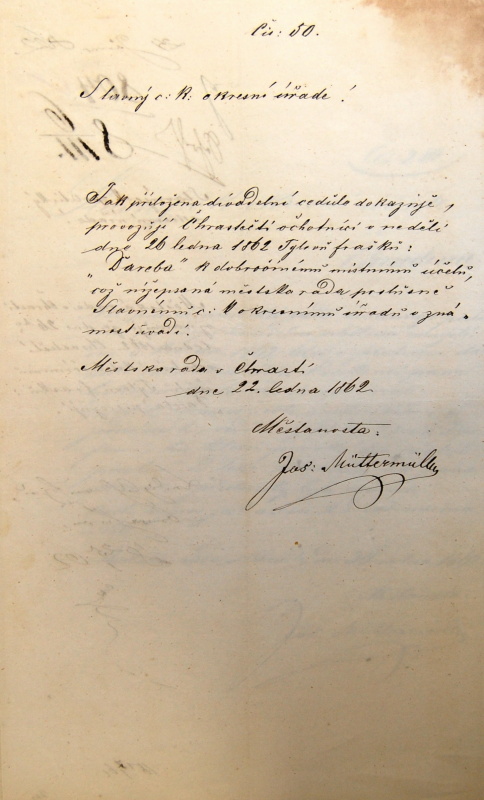 Čís: 50.
Slavný c: k: okresní úřade!
Jak přiložena divadelní cedule dokazuje,
provozují Chrastečtí ochotníci v neděli
dne 26 ledna 1862 Tylovu frašku:
„Ďareba“ k dobročinému místnímu účelu,
což nížepsaná městska rada poslušně
Slavnému c: k okresnímu úřadu v zná„
most uvádí.
Městska rada v Chrasti
dne 22. ledna 1862
Městanosta:
Jos: Müttermüller